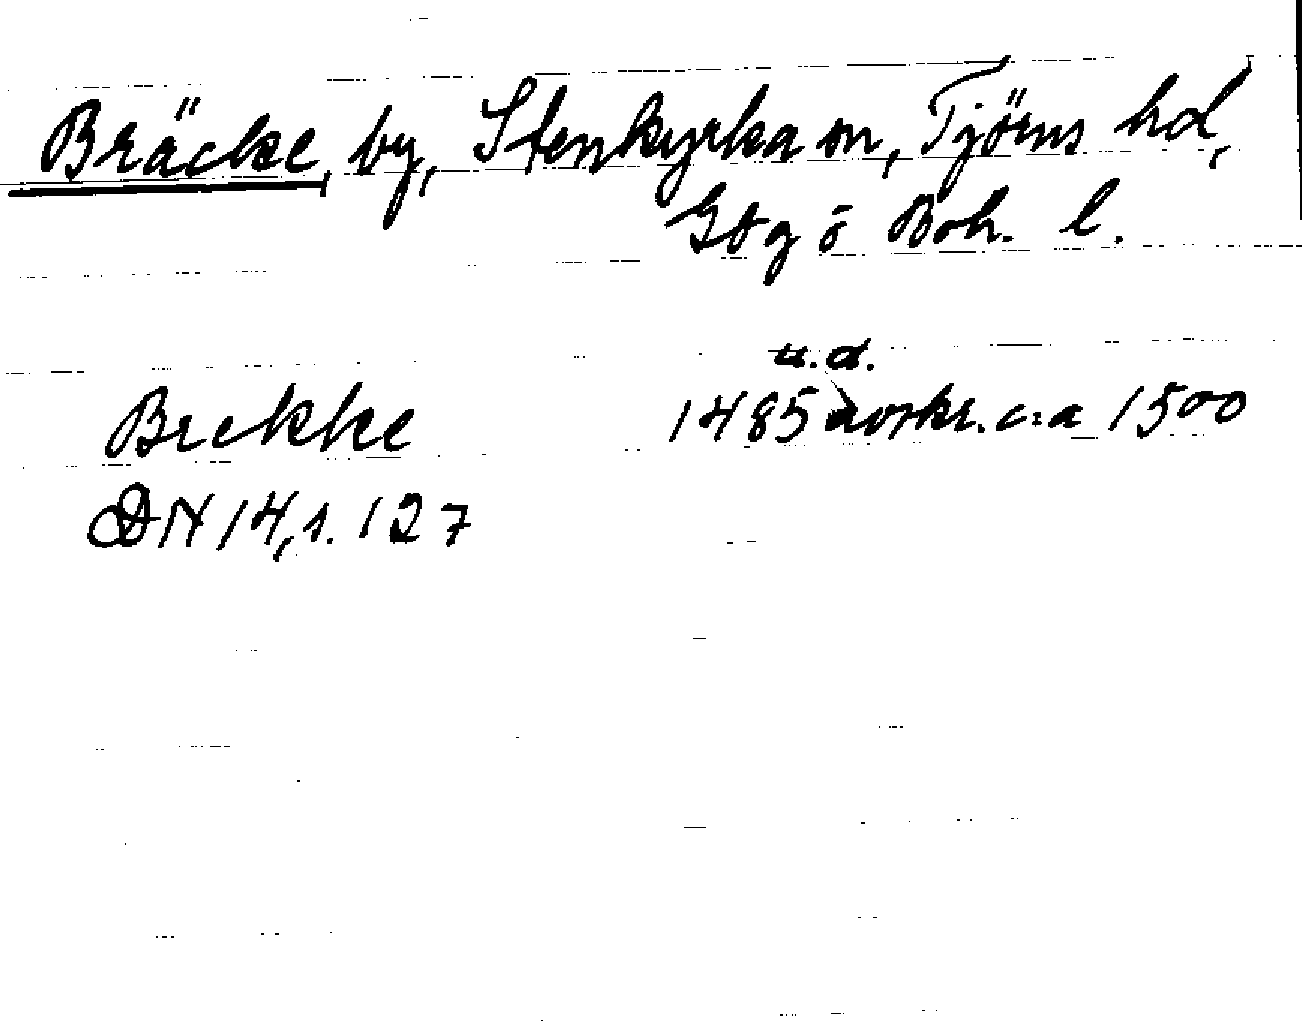 Bräcke, by, Stenkyrka sn, Tjörns hd,
Gbg o Boh. l.
u.d.
Brekke 1485 avskr. c:a 1500
DN 14,1.127